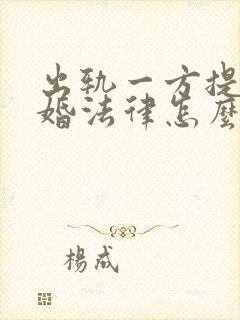 出轨一方提
婚法律怎麼
楊成